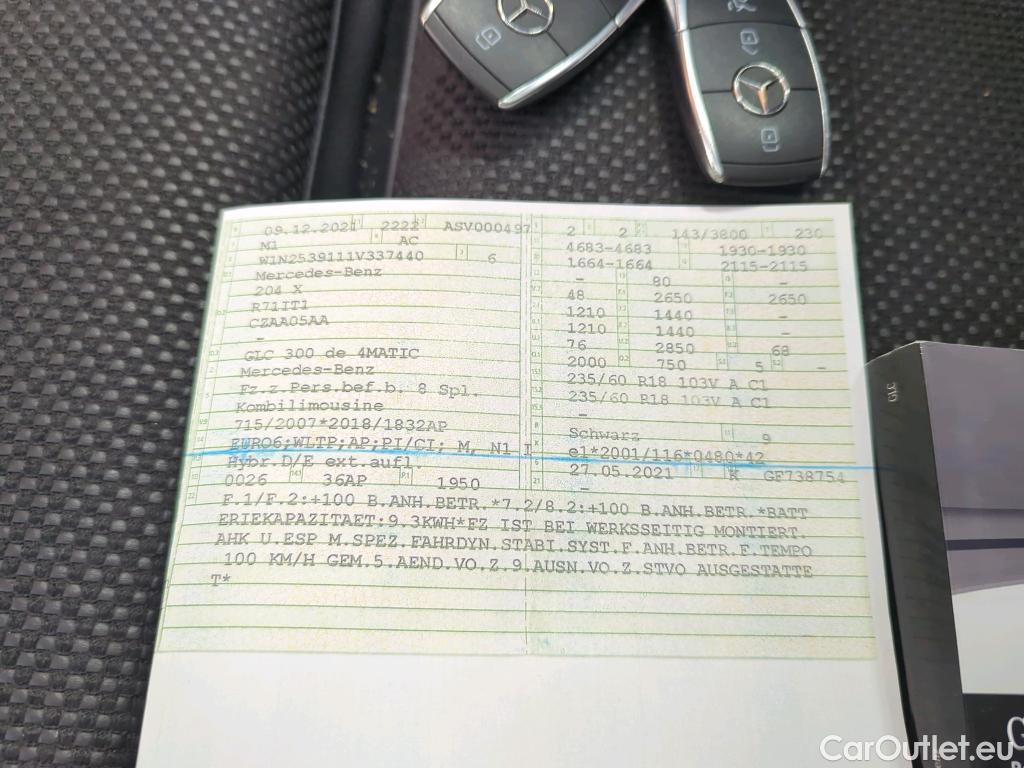 09.12.2021 2222 ASV000497 2 2 143/3800 230
M1 AC 4683-4683 1930-1930
W1N2539111V337440 6 1664-1664 2115-2115
Mercedes-Benz - 80 -
204 X 48 2650 2650
R71IT1 1210 1440 -
CZAA05AA 1210 1440 -
- 76 2850 68
GLC 300 de 4MATIC 2000 750 5 -
Mercedes-Benz 235/60 R18 103V A C1
Fz.z.Pers.bef.b. 8 Spl. 235/60 R18 103V A C1
Kombilimousine -
715/2007*2018/1832AP Schwarz 9
EURO6;WLTP;AP;PI/CI; M, N1 I e1*2001/116*0480*42
Hybr.D/E ext.aufl. 27.05.2021 K GF738754
0026 36AP 1950 -
F.1/F.2:+100 B.ANH.BETR.*7.2/8.2:+100 B.ANH.BETR.*BATT
ERIEKAPAZITAET:9.3KWH*FZ IST BEI WERKSSEITIG MONTIERT.
AHK U.ESP M.SPEZ.FAHRDYN.STABI.SYST.F.ANH.BETR.F.TEMPO
100 KM/H GEM.5.AEND.VO.Z.9.AUSN.VO.Z.STVO AUSGESTATTE
T*
CarOutlet.eu